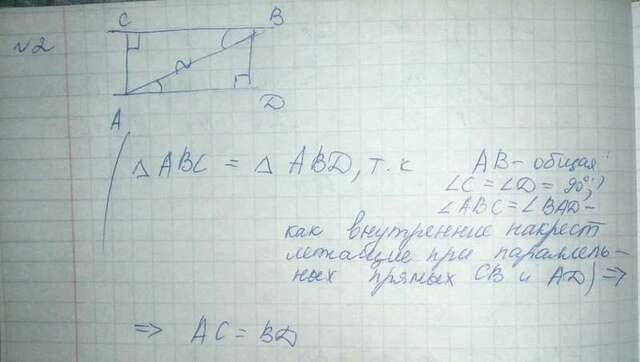 №2
C B
A D
Δ ABC = Δ ABD, т.к AB - общая
∠C = ∠D = 90°
∠ABC = ∠BAD -
как внутренние накрест
лежащие при параллель-
ных прямых CB и AD) =>
=> AC = BD